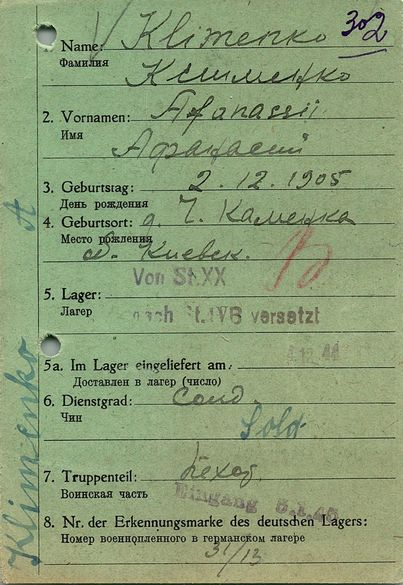 302
1. Name: Klimenko
Фамилия
Клименко
2. Vornamen: Afanassii
Имя
Афанасий
3. Geburtstag: 2. 12. 1905
День рождения
4. Geburtsort: д. Г. Каменка
Место рождения
о. Киевск.
Von St.XX
5. Lager:
Лагер
nach St.IVB versetzt
4.10.44
5a. Im Lager eingeliefert am:
Доставлен в лагер (число)
6. Dienstgrad: солд.
Чин
Sold.
7. Truppenteil: пехот.
Воинская часть
Eingang 5.1.45
8. Nr. der Erkennungsmarke des deutschen Lagers:
Номер военнопленного в германском лагере
31/13
Klimenko A